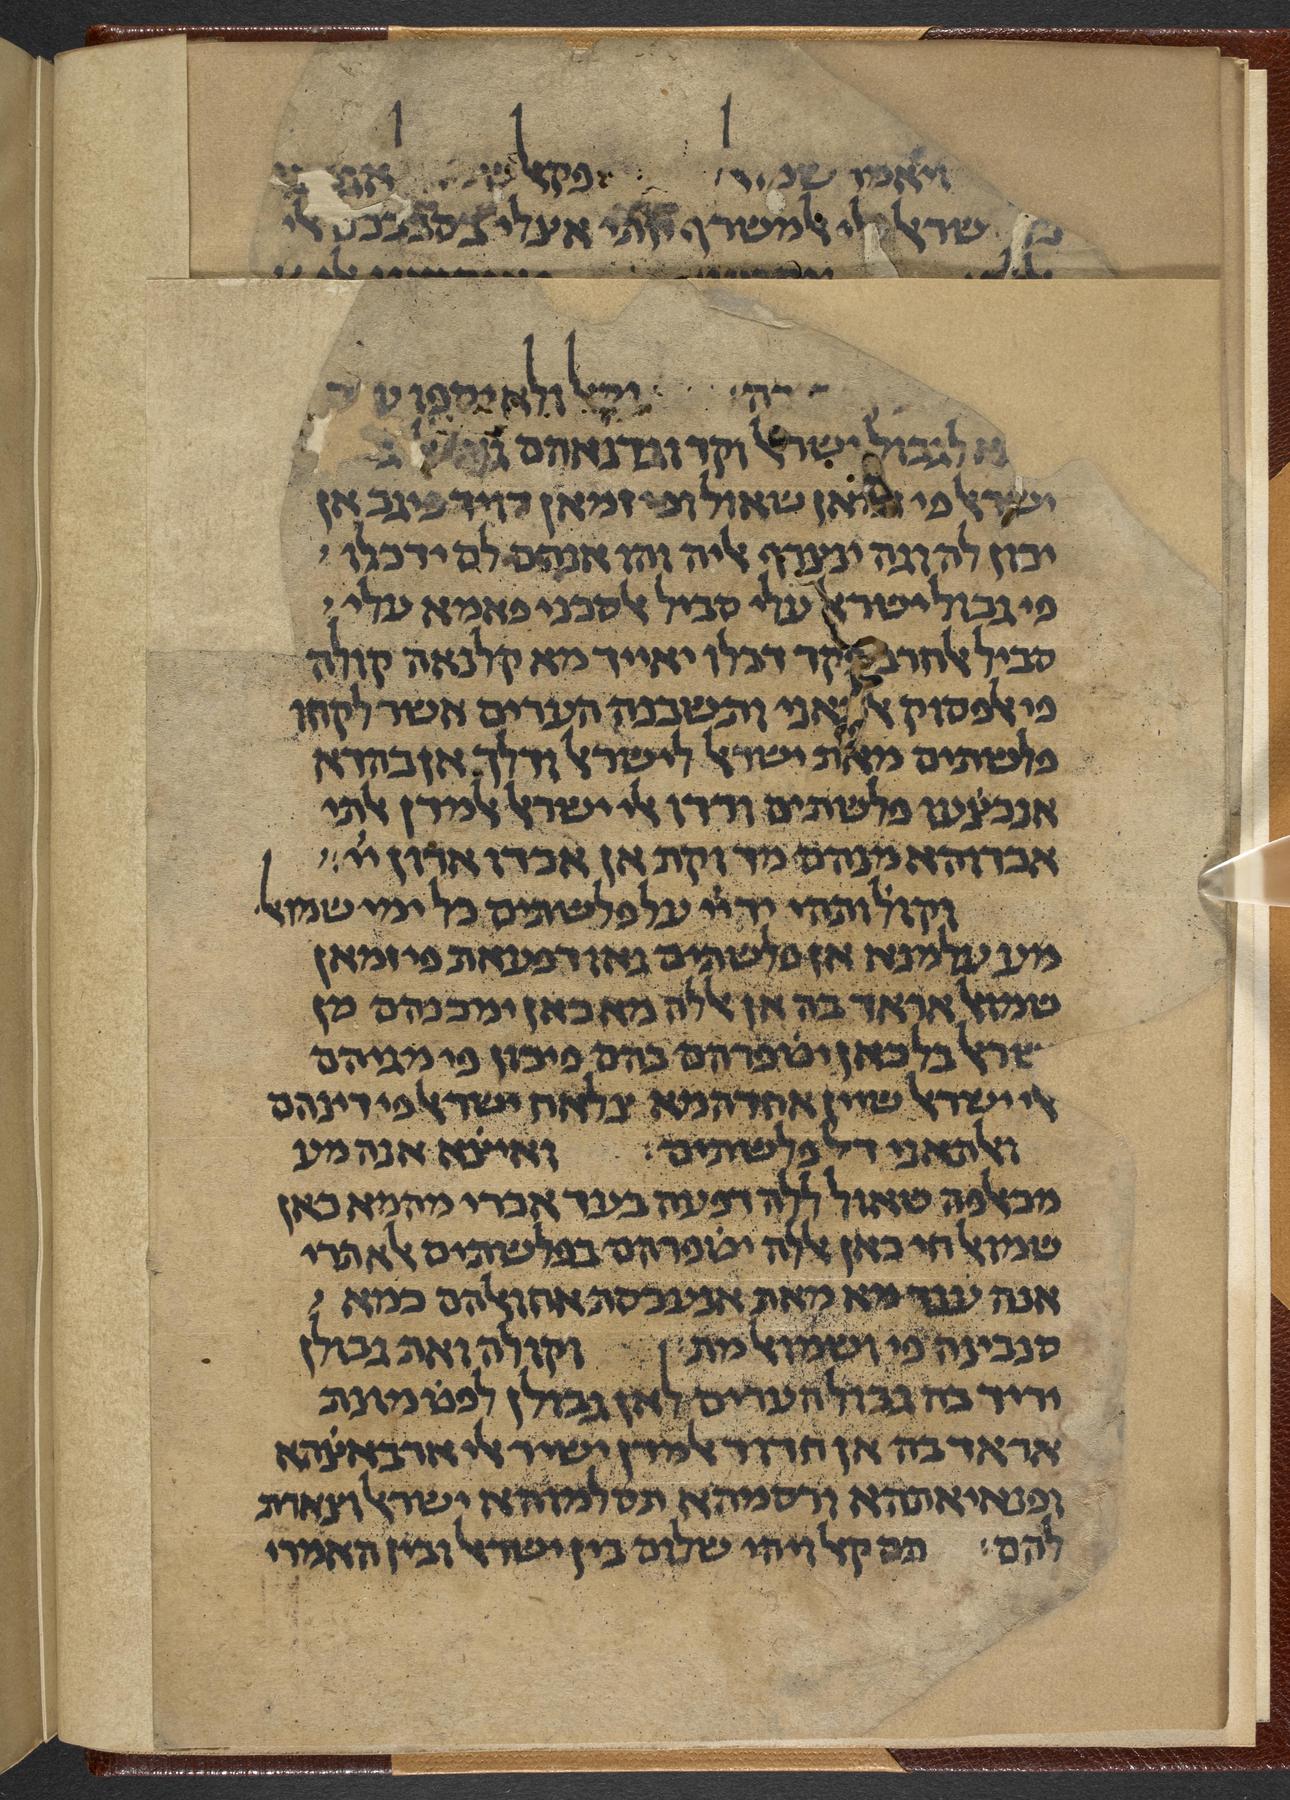 ויאמר
פקאל
ישראל אלי אלמשרף חתי אעלי
וקאל ולא יספו עוד
לבוא לגבול ישראל וקד וגדנאהם
ישראל פי זמאן שאול ופי זמאן דויד פיגב אן
יכון להדא וגה ינצרף אליה והו אנהם לם ידכלו
פי גבול ישראל עלי סביל אלסכני פאמא עלי
סביל אלחרב פקד דכלו יאייד מא קלנאה קולה
פי אלפסוק אלתאני ותשבנה הערים אשר לקחו
פלשתים מאת ישראל לישראל ודלך אן בהדא
אנכצׄעו פלשתים ורדו אלי ישראל אלמדן אלתי
אכדוהא מנהם מד וקת אן אכדו ארון ייי
וקולׄ ותהי יד ייי על פלשתים כל ימי שמואל
מע עלמנא אן פלשתים גאו דפעאת פי זמאן
שמואל אראד בה אן אללה מא כאן ימכנהם מן
ישראל בל כאן יטׄפרהם בהם פיכון פי מגיהם
אלי ישראל שיין אחדהמא צלאח ישראל פי דינהם
ואלתאני דל פלשתים ואיצׄא אנה מע
מכאלפה שאול ללה דפעה בעד אכרי מהמא כאן
שמואל חי כאן אללה יטׄפרהם בפלשתים אלא תרי
אנה ענד מא מאת אנעכסת אחואלהם כמא
סנבינה פי ושמואל מת וקולה ואת גבולן
יריד בה גבול הערים לאן גבולן לפטׄ מונת
אראד בה אן חדוד אלמדן ישיר אלי ארבאצׄהא
ופנאיאתהא ורסמהא תסלמוהא ישראל וצארת
להם תם קאל ויהי שלום בין ישראל ובין האמרי